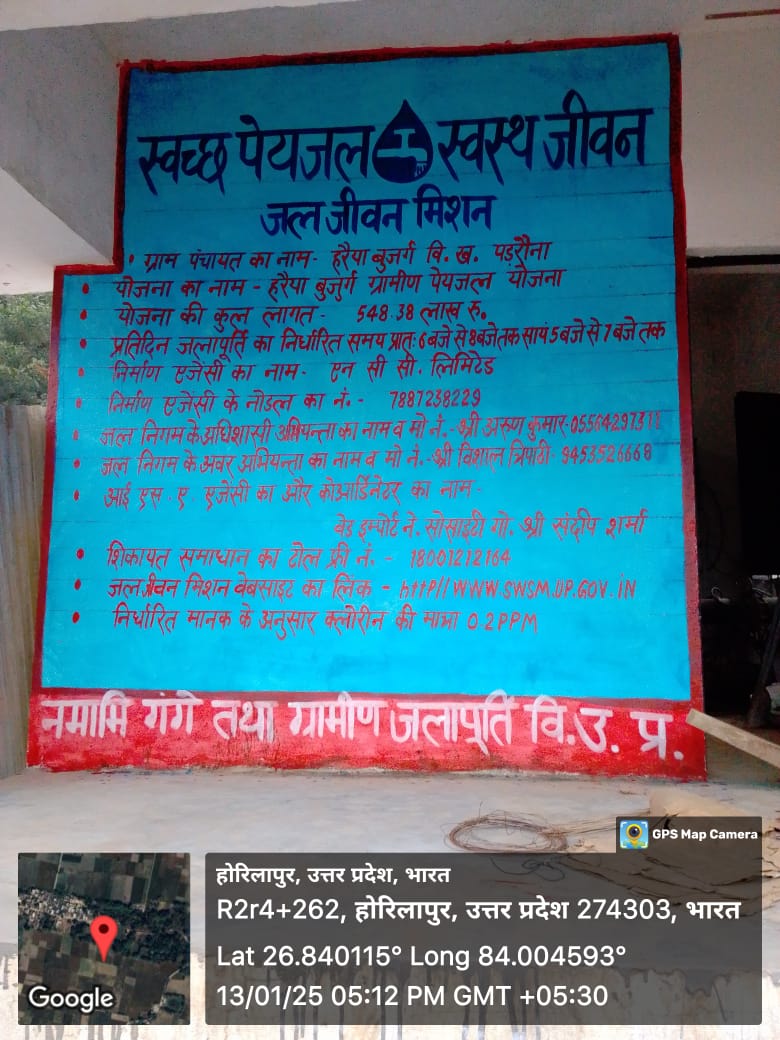 स्वच्छ पेयजल स्वस्थ जीवन
जल जीवन मिशन
• ग्राम पंचायत का नाम- हरैया बुजर्ग वि. ख. पडरौना
• योजना का नाम - हरैया बुजुर्ग ग्रामीण पेयजल योजना
• योजना की कुल लागत- 548.38 लाख रु.
• प्रतिदिन जलापूर्ति का निर्धारित समय प्रातः 6 बजे से 8 बजे तक सायं 5 बजे से 7 बजे तक
• निर्माण एजेंसी का नाम- एन सी सी. लिमिटेड
• निर्माण एजेंसी के नोडल का नं.- 7887238229
• जल निगम के अधिशासी अभियन्ता का नाम व मो नं.-श्री अरुण कुमार-
• जल निगम के अवर अभियन्ता का नाम व मो नं.-श्री विशाल त्रिपाठी- 9453526668
• आई एस. ए. एजेंसी का और कोआर्डिनेटर का नाम-
वेड इम्पोर्ट ने. सोसाइटी गो. श्री संदीप शर्मा
• शिकायत समाधान का टोल फ्री नं. - 18001212164
• जल जीवन मिशन वेबसाइट का लिंक - HTTP//WWW.SWSM.UP.GOV.IN
• निर्धारित मानक के अनुसार क्लोरीन की मात्रा 0.2 PPM
नमामि गंगे तथा ग्रामीण जलापूर्ति वि.उ. प्र.
GPS Map Camera
होरिलापुर, उत्तर प्रदेश, भारत
R2r4+262, होरिलापुर, उत्तर प्रदेश 274303, भारत
Lat 26.840115° Long 84.004593°
13/01/25 05:12 PM GMT +05:30
Google